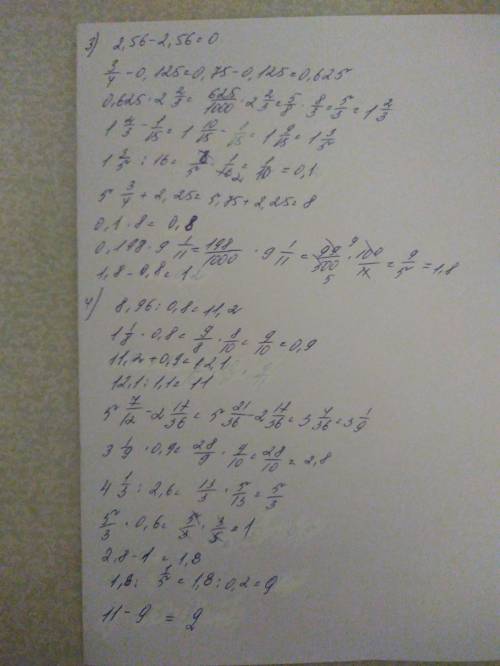 3) 2,56-2,56=0
3/4-0,125=0,75-0,125=0,625
0,625·2 2/3= 625/1000·2 2/3=5/8·8/3=5/3=1 2/3
1 2/3-1/15=1 10/15-1/15=1 9/15=1 3/5
1 3/5:16=8/5·1/16=1/10=0,1
5 3/4+2,25=5,75+2,25=8
0,1·8=0,8
0,198·9 1/11=198/1000·9 1/11=99/500·100/11=9/5=1,8
1,8-0,8=1
4) 8,96:0,8=11,2
1 1/8·0,8=9/8·8/10=9/10=0,9
11,2+0,9=12,1
12,1:1,1=11
5 7/12-2 17/36=5 21/36-2 17/36=3 4/36=3 1/9
3 1/9·0,9=28/9·9/10=28/10=2,8
4 1/3:2,6=13/3·5/13=5/3
5/3·0,6=5/3·3/5=1
2,8-1=1,8
1,8:1/5=1,8:0,2=9
11-9=2